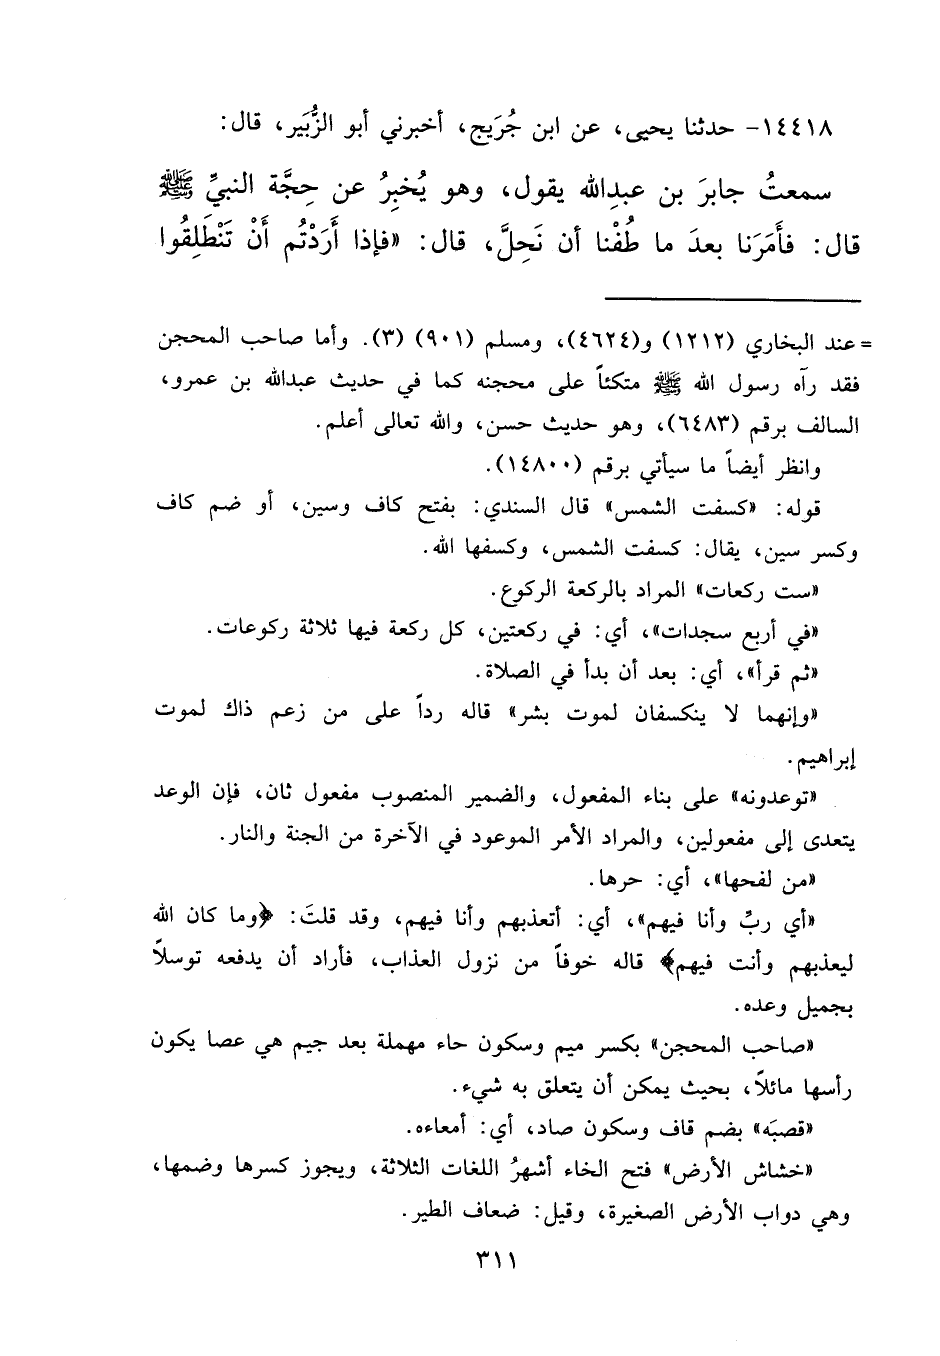 ١٤٤١٨- حدثنا يحيى، عن ابن جُرَيج، أخبرني أبو الزُّبَير، قال:
سمعتُ جابرَ بن عبدِالله يقول، وهو يُخبِرُ عن حِجَّة النبيِّ ﷺ
قال: فأَمَرَنا بعدَ ما طُفْنا أن نَحِلَّ، قال: «فإذا أَرَدْتُم أَنْ تَنْطَلِقُوا
= عند البخاري (١٢١٢) و(٤٦٢٤)، ومسلم (٩٠١) (٣). وأما صاحب المحجن
فقد رآه رسول الله ﷺ متكئاً على محجنه كما في حديث عبدالله بن عمرو،
السالف برقم (٦٤٨٣)، وهو حديث حسن، والله تعالى أعلم.
وانظر أيضاً ما سيأتي برقم (١٤٨٠٠).
قوله: «كسفت الشمس» قال السندي: بفتح كاف وسين، أو ضم كاف
وكسر سين، يقال: كسفت الشمس، وكسفها الله.
«ست ركعات» المراد بالركعة الركوع.
«في أربع سجدات»، أي: في ركعتين، كل ركعة فيها ثلاثة ركوعات.
«ثم قرأ»، أي: بعد أن بدأ في الصلاة.
«وإنهما لا ينكسفان لموت بشر» قاله رداً على من زعم ذاك لموت
إبراهيم.
«توعدونه» على بناء المفعول، والضمير المنصوب مفعول ثان، فإن الوعد
يتعدى إلى مفعولين، والمراد الأمر الموعود في الآخرة من الجنة والنار.
«من لفحها»، أي: حرها.
«أي ربِّ وأنا فيهم»، أي: أتعذبهم وأنا فيهم، وقد قلتَ: ﴿وما كان الله
ليعذبهم وأنت فيهم﴾ قاله خوفاً من نزول العذاب، فأراد أن يدفعه توسلاً
بجميل وعده.
«صاحب المحجن» بكسر ميم وسكون حاء مهملة بعد جيم هي عصا يكون
رأسها مائلاً، بحيث يمكن أن يتعلق به شيء.
«قصبَه» بضم قاف وسكون صاد، أي: أمعاءه.
«خشاش الأرض» فتح الخاء أشهرُ اللغات الثلاثة، ويجوز كسرها وضمها،
وهي دواب الأرض الصغيرة، وقيل: ضعاف الطير.
٣١١